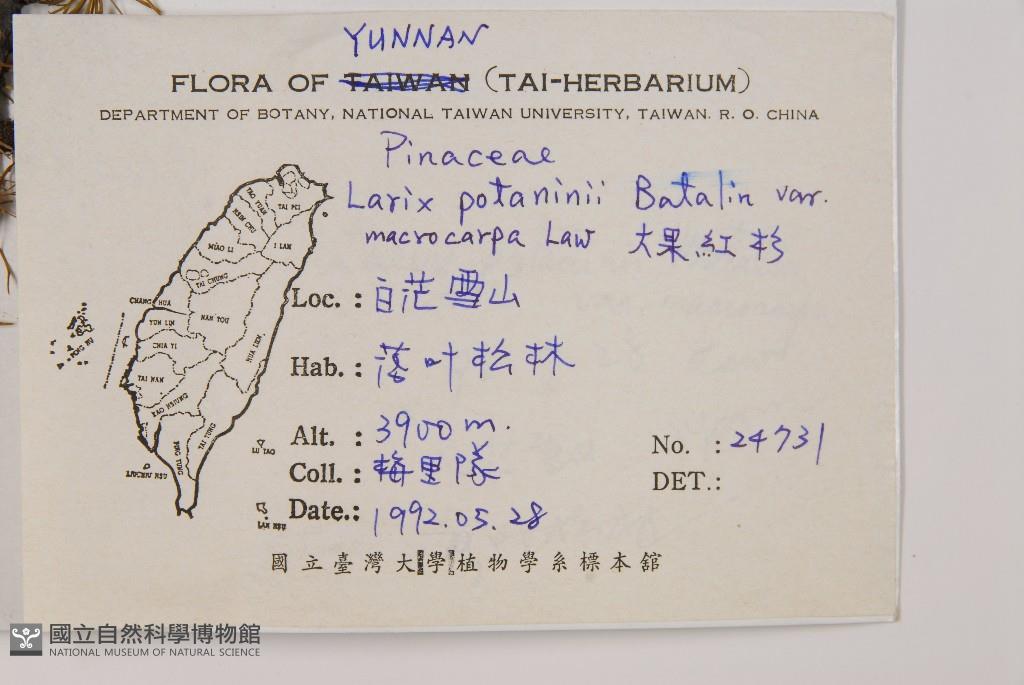 YUNNAN
FLORA OF TAIWAN (TAI-HERBARIUM)
DEPARTMENT OF BOTANY, NATIONAL TAIWAN UNIVERSITY, TAIWAN. R. O. CHINA
Pinaceae
Larix potaninii Batalin var.
macrocarpa Law 大果紅杉
TAO YUAN
TAI PEI
HSIN CHU
MIAO LI
I LAN
TAI CHUNG
Loc. : 白茫雪山
CHANG HUA
YUN LIN
NAN TOU
CHIA YI
HUA LIEN
PONG HU
Hab. : 落叶松林
TAI NAN
KAO HSIUNG
TAI TUNG
PING TUNG
Alt. : 3900 m.
No. : 24731
LU TAO
LIUCHIU HSU
Coll. : 梅里隊
DET.:
Date.: 1992.05.28
LAN HSU
國立臺灣大學植物學系標本舘
國立自然科學博物館
NATIONAL MUSEUM OF NATURAL SCIENCE